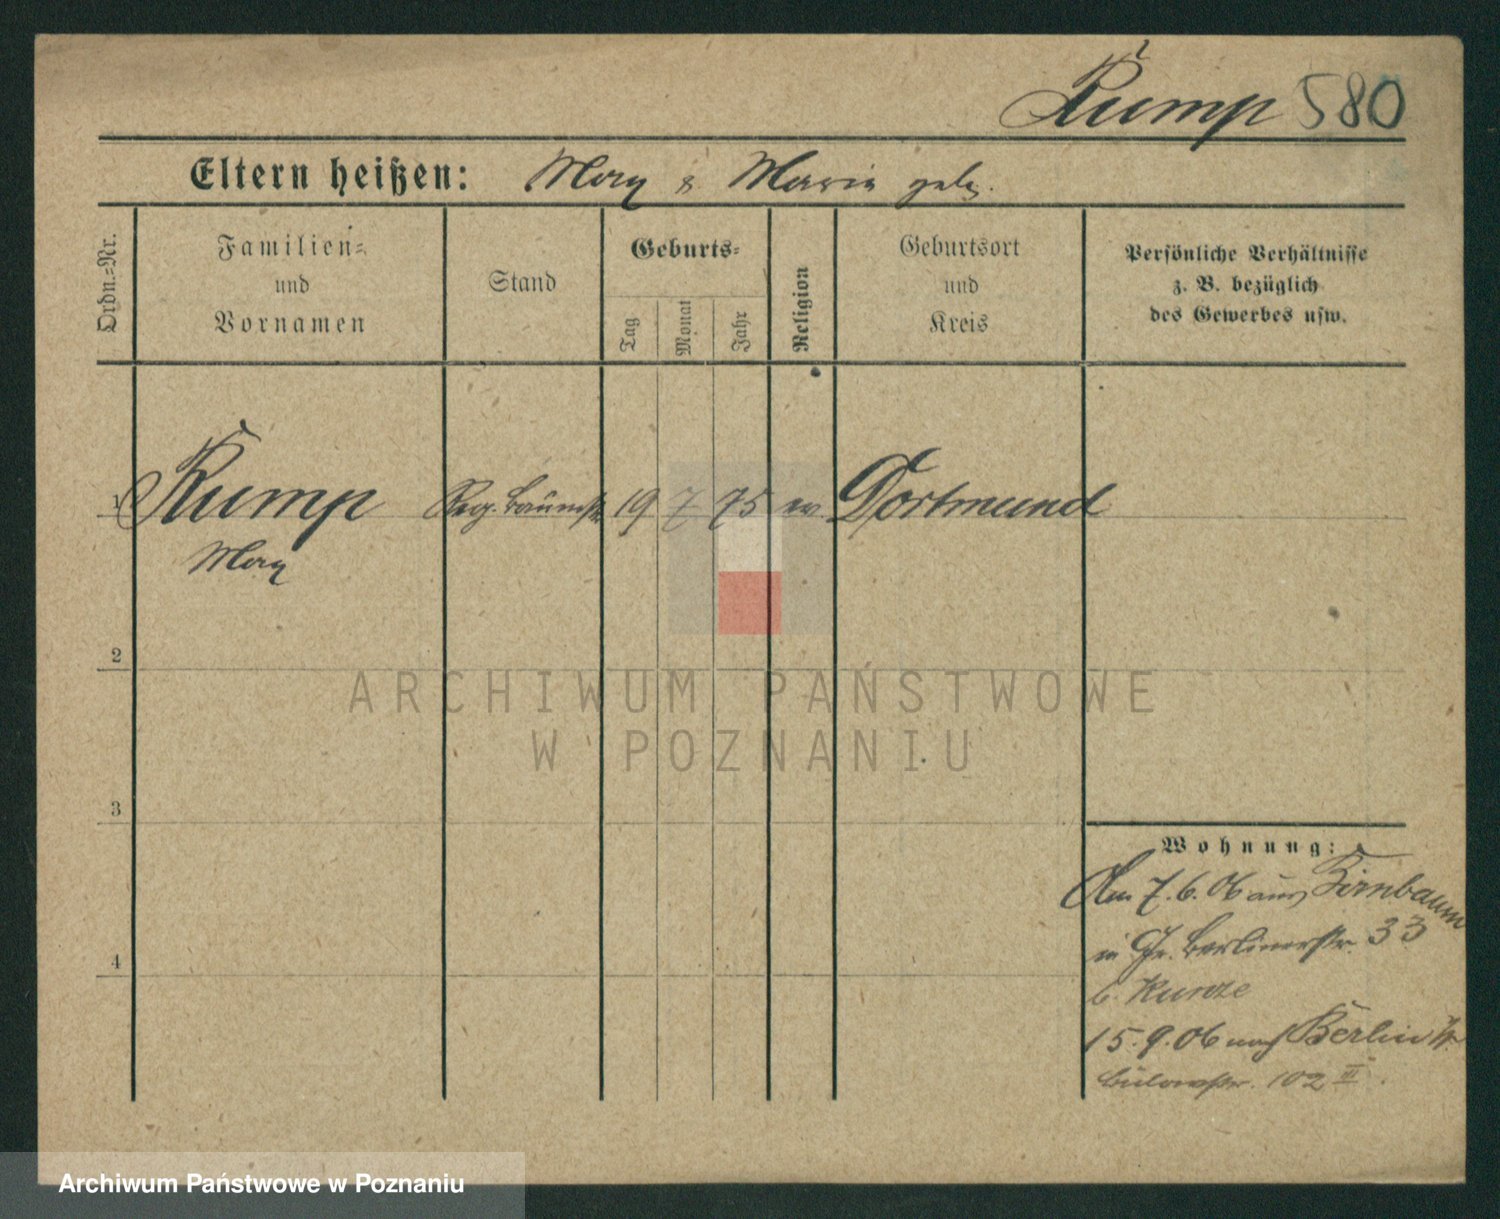 Rump 580
Eltern heißen: Max & Maria geb.
Ordn.-Nr.
Familien-
und
Vornamen
Stand
Geburts-
Tag
Monat
Jahr
Religion
Geburtsort
und
Kreis
Persönliche Verhältnisse
z. B. bezüglich
des Gewerbes usw.
1 Rump Reg. Baumstr. 19 7 75 ev. Dortmund
Max
2
3
4
Wohnung:
Am 7.6.06 aus Birnbaum
in Gr. Berlinerstr. 33
b. Kunze
15.9.06 nach Berlin W.
Bülowstr. 102 III.
ARCHIWUM PAŃSTWOWE
W POZNANIU
Archiwum Państwowe w Poznaniu